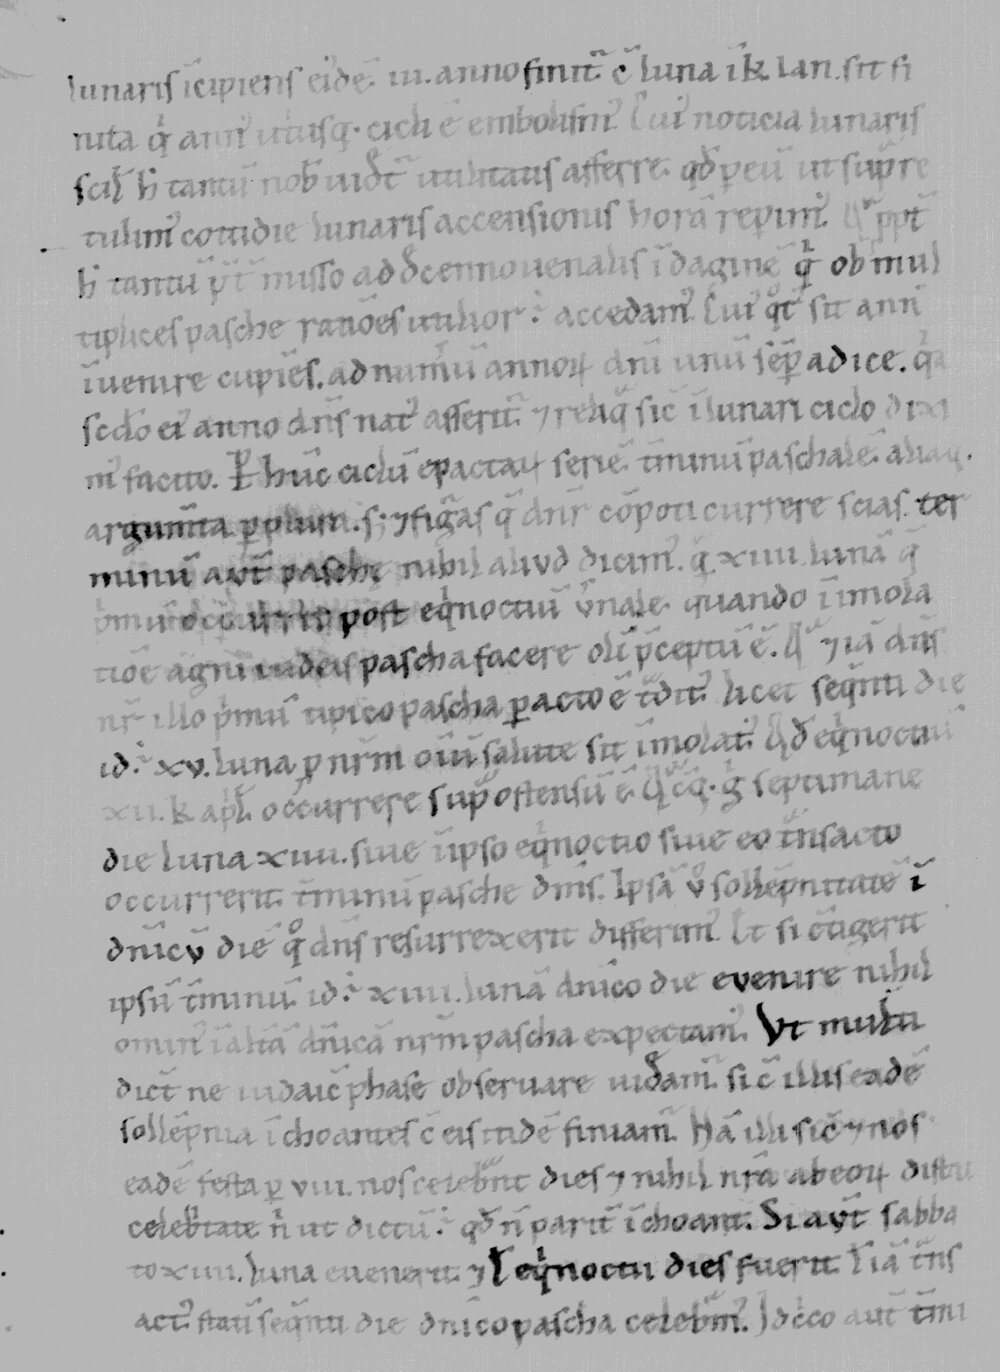 lunaris īcipiens eidē. iii. anno finit̄ c̄ luna ī k̄ ian. sit fi
nita q̄ ann' utiusq; cicli ē embolism'. Cui' noticia lunaris
scił ħ tantū nob̄ uidet̄ utilitatis afferre. qđ p eū ut sup̄ re
tulim' cottidie lunaris accensionis horā repim'. Q̄ ppt̄
ħ tantū p̄t̄ misso ad decennouenalis īdaginē q̄ ob mul
tiplices pasche rationes utilior ÷ accedam'. Cui' q̊t' sit ann'
īuenire cupiēs. ad num̄ū annoꝝ dn̄i unū sēp adice. q̄a
scd̄o ei' anno dn̄s nat' asserit̄. ⁊ reliq̄ sic̄ ī lunari ciclo dixi
m' facito. P' hūc ciclū epactaꝝ seriē. t̄minū paschalē. aliaq;
argum̄ta p plura. s; ⁊ figās q̄ dn̄r cōpoti currere scias. ter
minū aut̄ pasche nihil aliud dicim'. q̄ xiiii. lunā q̄
p̄mū occurrit post eq̄noctiū v̄nale. quando ī imola
tiōe agni iudeis pascha facere oli p̄ceptū ē. Q̄ ⁊ iā dn̄s
nr̄ illo p̄mū tipico pascha pacto ē t̄dit'. licet seq̄nti die
id ÷ xv. luna p nr̄m oīū salute sit īmolat'. Qđ eq̄noctiū
xii. k̄ apł occurrere sup̄ ostensū ē. Q̄c̄q; g septimane
die luna xiiii. siue ī ipso eq̄noctio siue eo t̄nsacto
occurrerit. t̄minū pasche dn̄s. Ipsā v̊ sollēpnitatē ī
dn̄icū diē q̊ dn̄s resurrexerit differim'. Et si c̄tigerit
ipsū t̄minū. id ÷ xiiii. lunā dn̄ico die evenire nihil
omin' ī altā dn̄icā nr̄m pascha expectam'. Vt multi
dict̄ ne iudaic̄ phase obseruare uideam̄. si c̄ illis eadē
sollēpnia īchoantes c̄ eis itidē finiam'. Nā illi sic̄ ⁊ nos
eadē festa p viii. nos celebn̄t dies ⁊ nihil nr̄a ab eoꝝ distat
celeb̄tate n̄ ut dictū ÷ qđ n̄ parit̄ īchoant̄. Si aut̄ sabba
to xiiii. luna euenerit. ⁊ ł eq̄noctii dies fuerit. ł iā t̄ns
act' statī seq̄nti die dn̄ico pascha celebm̄'. Idcco aut̄ t̄mi